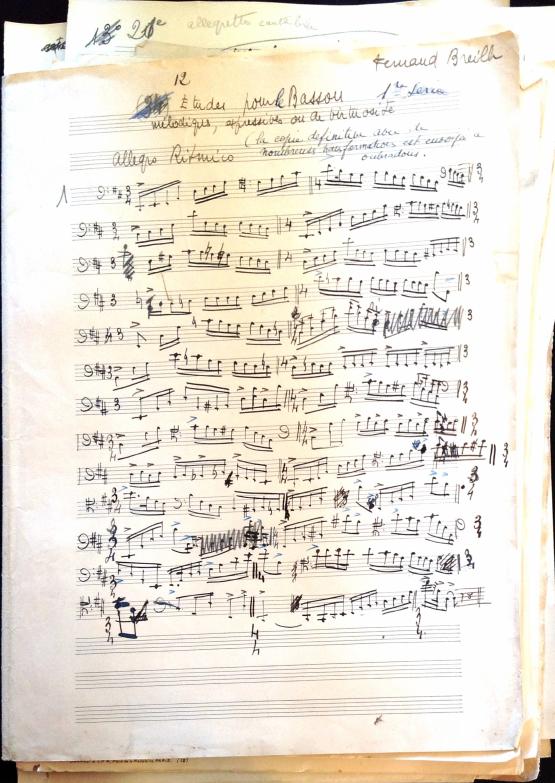 2de allegretto cantabile
Fernand Breilh
12
Etudes pour le Basson 1re Serie
mélodiques, expressives ou de virtuosité
Allegro Ritmico (la copie définitive avec de
nombreuses transformations est envoyée a
oubradous.
1